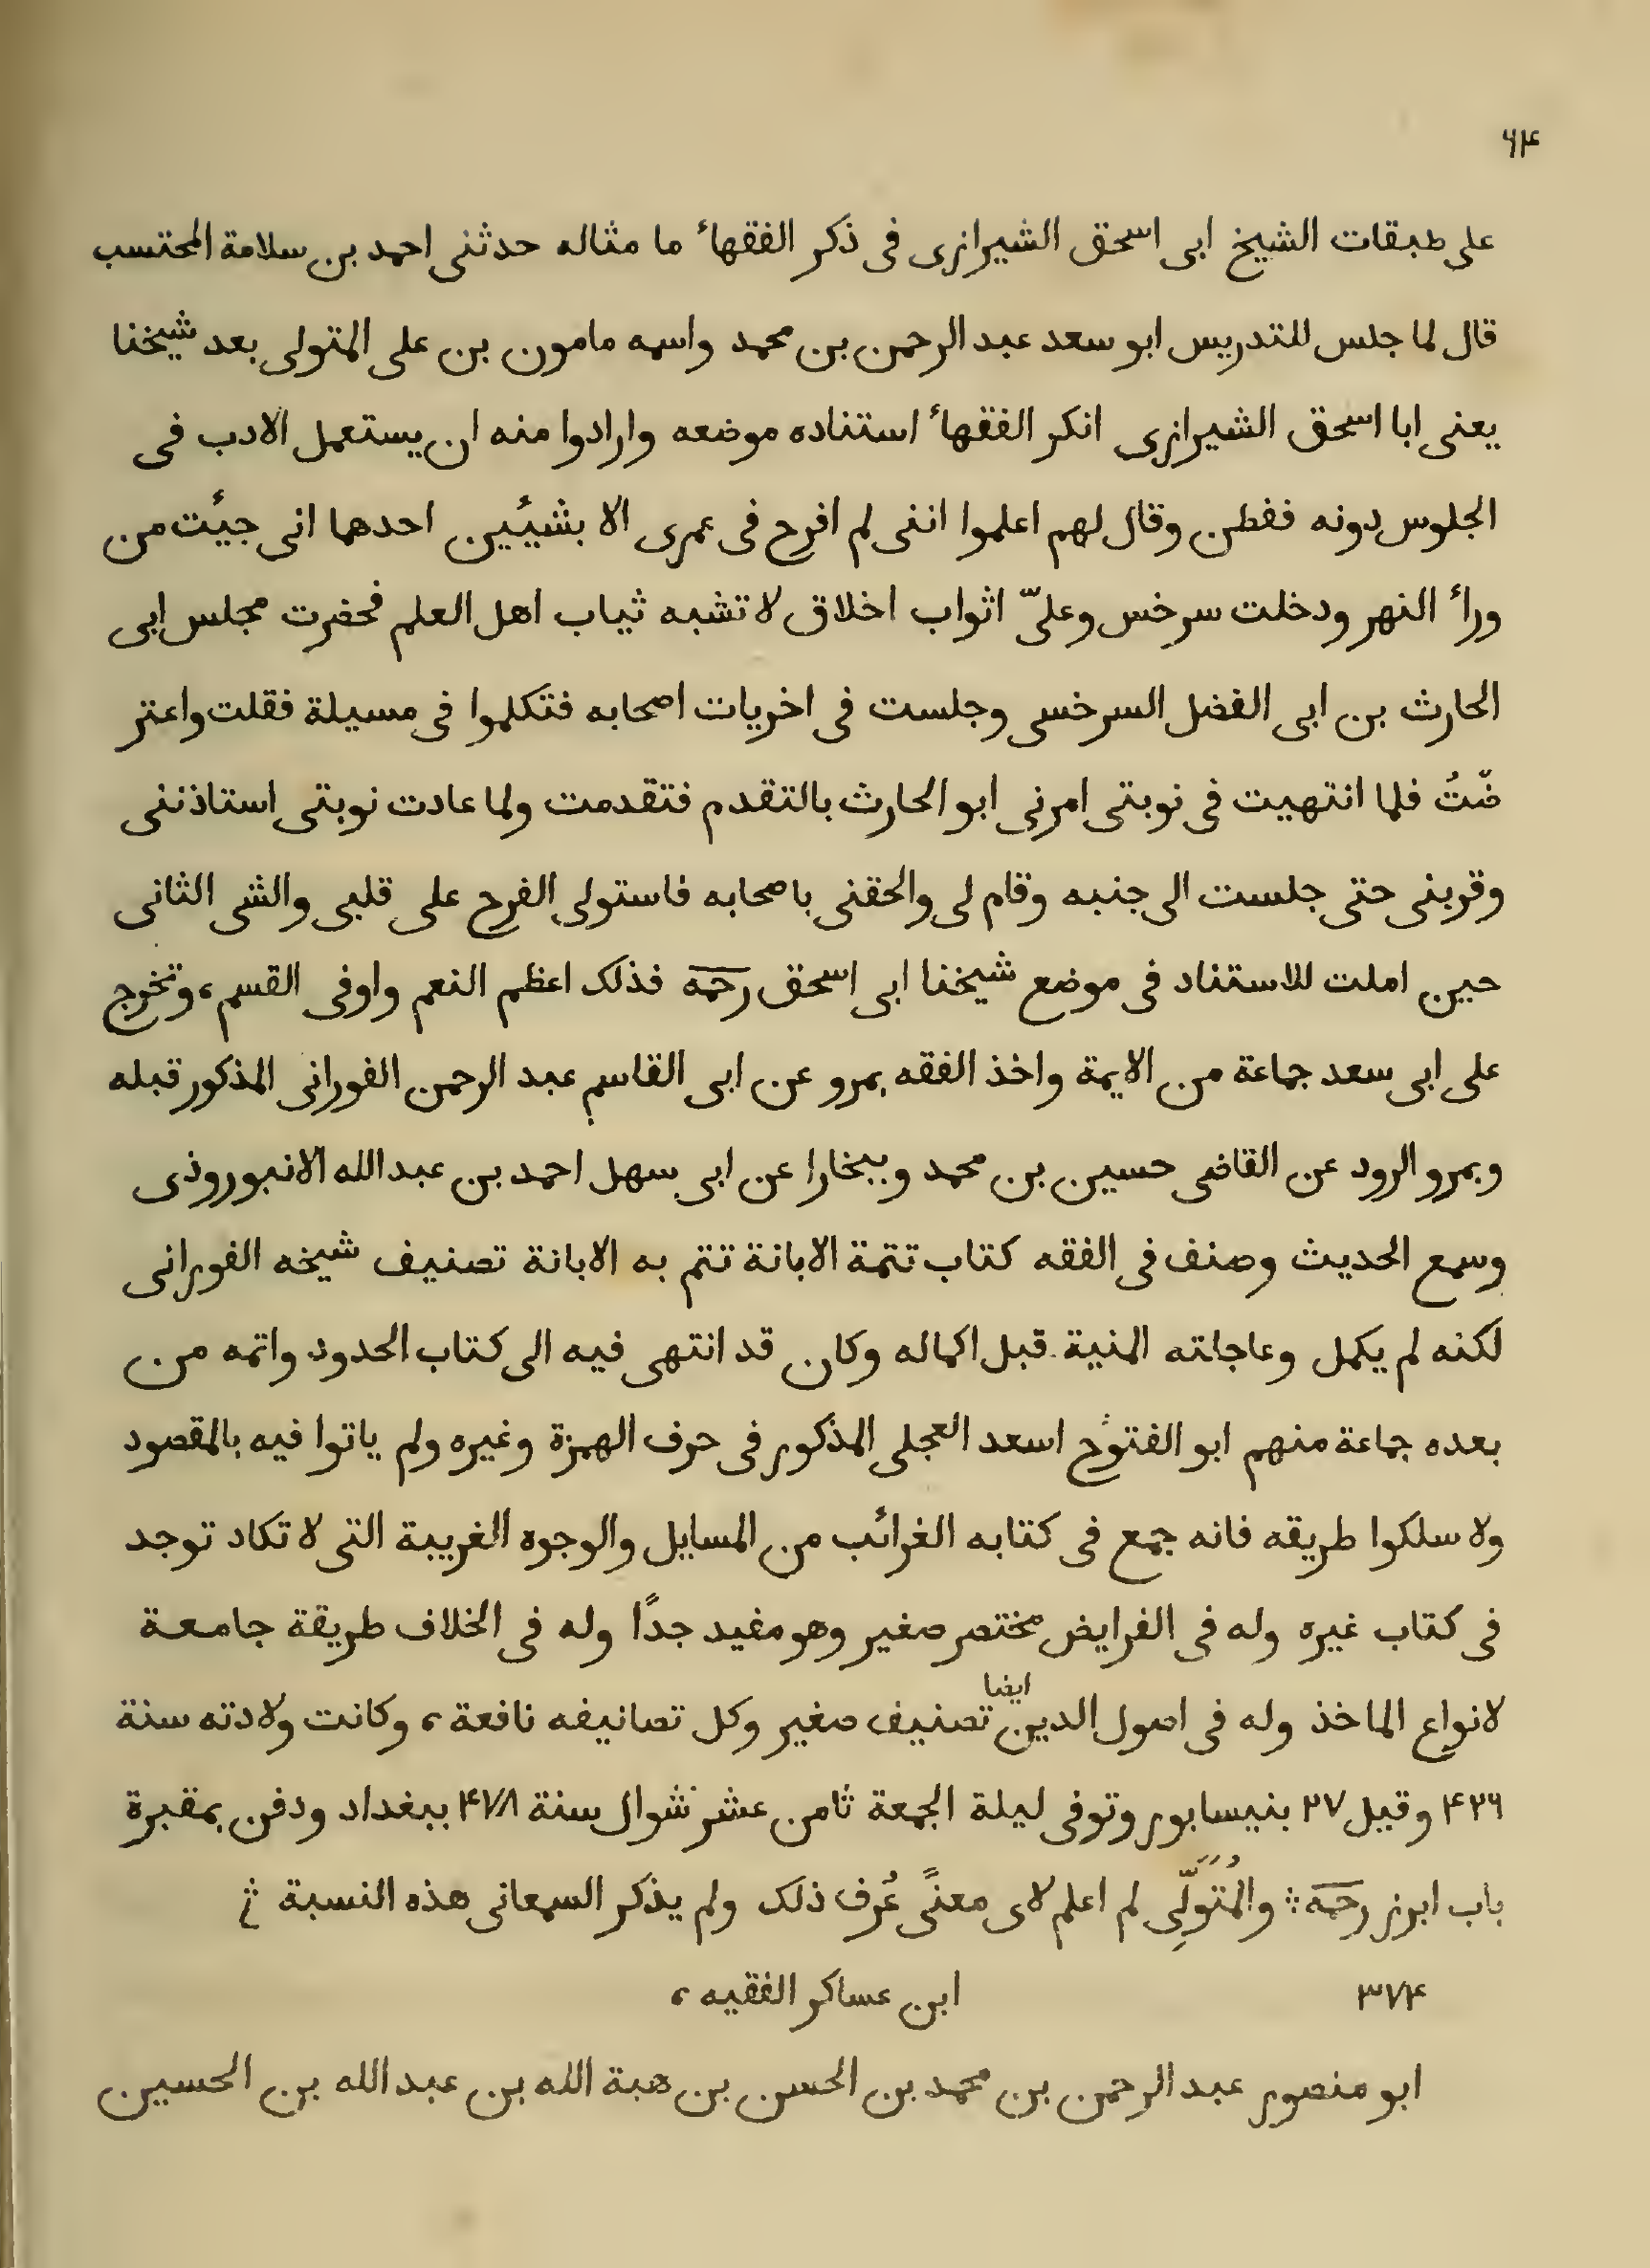 ۶۴
على طبقات الشيخ ابى اسحق الشيرازى فى ذكر الفقهاء ما مثاله حدثنى احمد بن سلامة المحتسب
قال لما جلس للتدريس ابو سعد عبد الرحمن بن محمد واسمه مامون بن على المتولى بعد شيخنا
يعنى ابا اسحق الشيرازى انكر الفقهاء استناده موضعه وارادوا منه ان يستعمل الادب فى
الجلوس دونه ففطن وقال لهم اعلموا اننى لم افرح فى عمرى الا بشيئين احدهما انى جيئت من
وراء النهر ودخلت سرخس وعلىّ اثواب اخلاق لا تشبه ثياب اهل العلم فحضرت مجلس ابى
الحارث بن ابى الفضل السرخسى وجلست فى اخريات اصحابه فتكلموا فى مسيلة فقلت واعتر
ضّتُ فلما انتهيت فى نوبتى امرنى ابو الحارث بالتقدم فتقدمت ولما عادت نوبتى استاذننى
وقربنى حتى جلست الى جنبه وقام لى والحقنى باصحابه فاستولى الفرح على قلبى والشى الثانى
حين املت للاستناد فى موضع شيخنا ابى اسحق رحمه فذلك اعظم النعم واوفى القسم، وتخرج
على ابى سعد جماعة من الايمة واخذ الفقه بمرو عن ابى القاسم عبد الرحمن الفورانى المذكور قبله
وبمرو الرود عن القاضى حسين بن محمد وببخارا عن ابى سهل احمد بن عبد الله الانبوروذى
وسمع الحديث وصنف فى الفقه كتاب تتمة الابانة تتم به الابانة تصنيف شيخه الفورانى
لكنه لم يكمل وعاجلته المنية قبل اكماله وكان قد انتهى فيه الى كتاب الحدود واتمه من
بعده جماعة منهم ابو الفتوح اسعد العجلى المذكور فى حرف الهمزة وغيره ولم ياتوا فيه بالمقصود
ولا سلكوا طريقه فانه جمع فى كتابه الغرائب من المسايل والوجوه الغريبة التى لا تكاد توجد
فى كتاب غيره وله فى الفرايض مختصر صغير وهو مفيد جدًا وله فى الخلاف طريقة جامعة
لانواع الماخذ وله فى اصول الدين ايضا تصنيف صغير وكل تصانيفه نافعة، وكانت ولادته سنة
۴۲۶ وقيل ۲۷ بنيسابور وتوفى ليلة الجمعة ثامن عشر شوال سنة ۴۷۸ ببغداد ودفن بمقبرة
باب ابرز رحمه ؞ والمُتَوَلّى لم اعلم لاى معنًى عُرف ذلك ولم يذكر السمعانى هذه النسبة ؞
۳۷۴ ابن عساكر الفقيه،
ابو منصور عبد الرحمن بن محمد بن الحسن بن هبة الله بن عبد الله بن الحسين